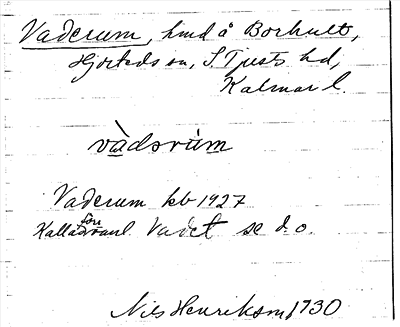 Vaderum, hmd å Borhult,
Hjorteds sn, S. Tjusts hd,
Kalmar l.
vàdərùm
Vaderum kb 1927
Kallad förr Vadet se d. o.
Nils Henriksm 1930